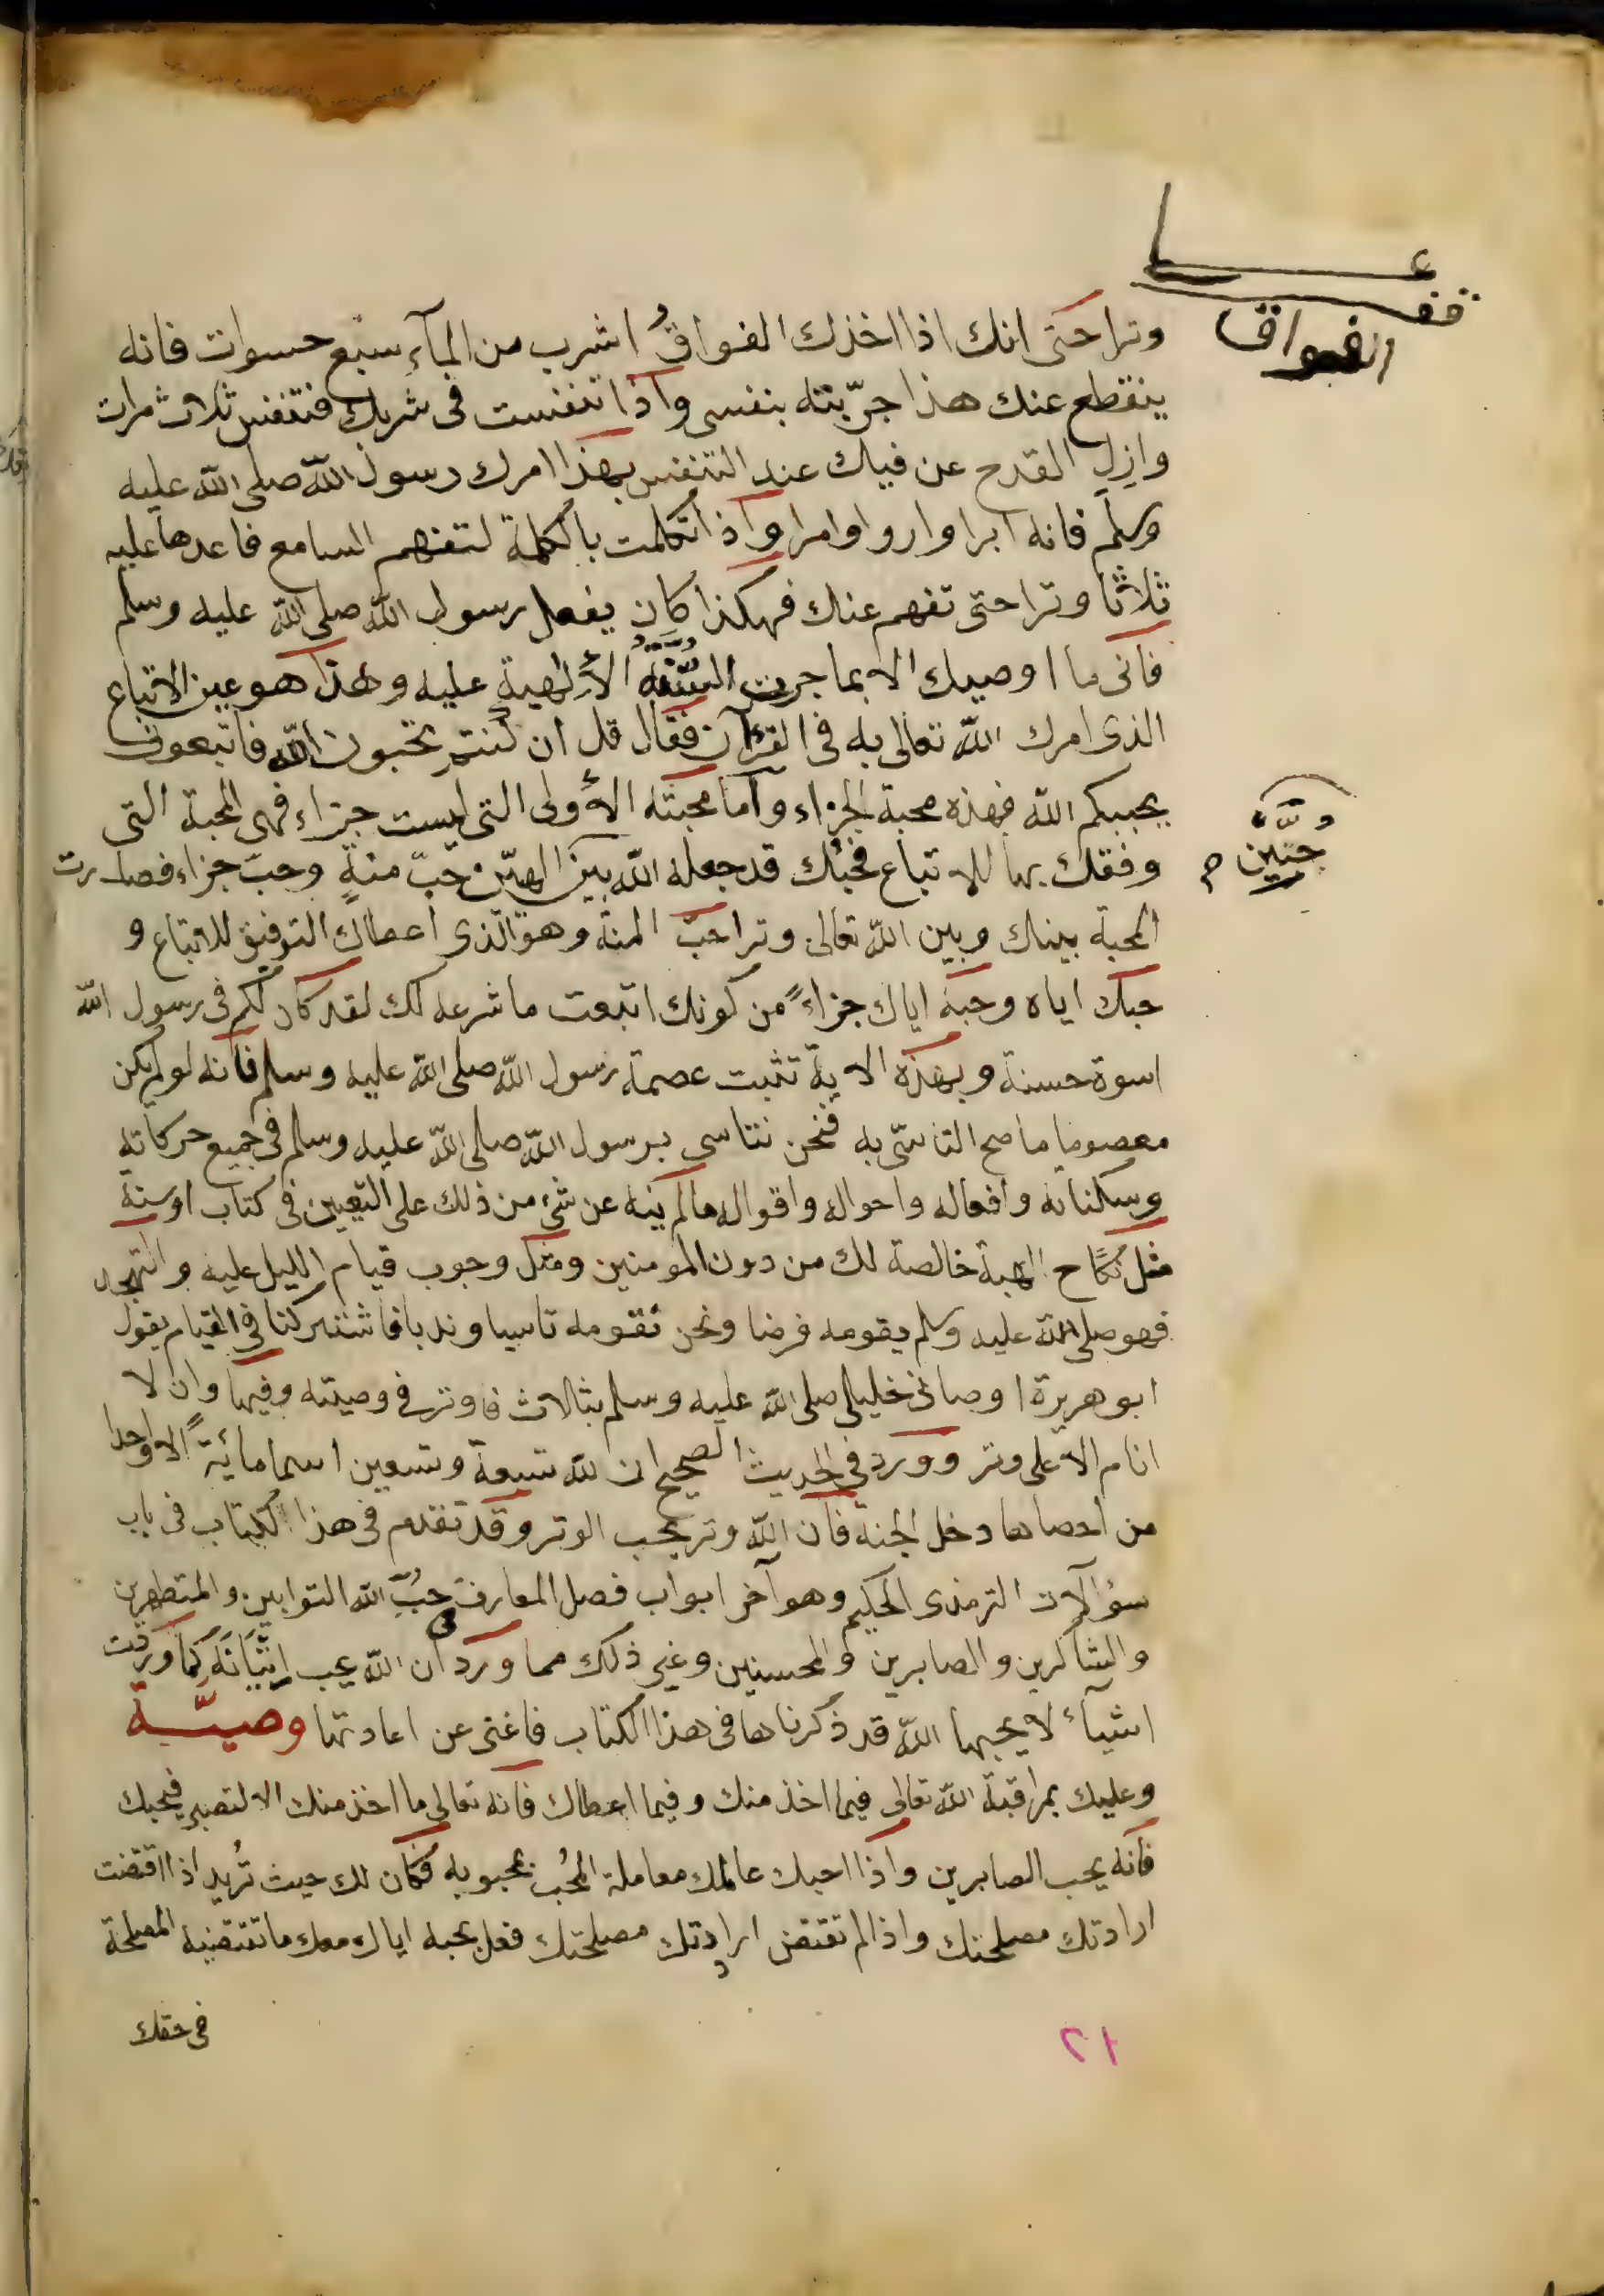 وترا حتى انك اذا اخذك الفواقُ اشرب من المآء سبع حسوات فانه
ينقطع عنك هذا جرّبته بنفسى واذا تنفست فى شربك فتنفس ثلاث مرات
وازِل القدح عن فيك عند التنفس بهذا امرك رسول الله صلى الله عليه
وسلم فانه ابرا واروا وامرا واذا تكلمت بالكلمة لتفهم السامع فاعدها عليه
ثلاثا وترا حتى تفهم عنك فهكذا كان يفعل رسول الله صلى الله عليه وسلم
فانى ما اوصيك الا بما جرت السُّنَّةُ الألهية عليه وهذا هو عين الاتباع
الذى امرك الله تعالى به فى القرآن فقال قل ان كنتم تحبون الله فاتبعونى
يحببكم الله فهذه محبة الجزاء وأما محبته الأولى التى ليست جزاء فهى المحبة التى
وفقك بها للاتباع فحبّك قد جعله الله بين الهيّن حبّ منةٍ وحبّ جزاء فصارت
المحبة بينك وبين الله تعالى وترا حبّ المنة وهو الذى اعطاك التوفيق للاتباع و
حبك اياه وحبه اياك جزاءً من كونك اتبعت ما شرعه لك لقد كان لكم فى رسول الله
اسوة حسنة وبهذه الاية تثبت عصمة رسول الله صلى الله عليه وسلم فانه لو لم يكن
معصوما ما صح التاسّى به فنحن نتاسى برسول الله صلى الله عليه وسلم فى جميع حركاته
وسكناته وافعاله واحواله واقواله ما لم ينه عن شئ من ذلك على التعيين فى كتاب اوسنة
مثل نكاح الهبة خالصة لك من دون المؤمنين ومثل وجوب قيام الليل عليه والتهجد
فهو صلى الله عليه وسلم يقومه فرضا ونحن نقومه تاسيا وندبا فاشتركنا فى القيام يقول
ابو هريرة اوصانى خليلى صلى الله عليه وسلم بثلاث فاوتر فى وصيته وفيها وان لا
انام الا على وتر وورد فى الحديث الصحيح ان لله تسعة وتسعين اسما مائةً الا واحدا
من احصاها دخل الجنة فان الله وتر يحب الوتر وقد تقدم فى هذا الكتاب فى باب
سؤالات الترمذى الحكيم وهو آخر ابواب فصل المعارف حُبِّ الله التوابين والمتطهرين
والشاكرين والصابرين والمحسنين وغير ذلك مما ورد ان الله يحب اتيانه كما وردت
اشيآء لا يحبها الله قد ذكرناها فى هذا الكتاب فاغنى عن اعادتها وصيّة
وعليك بمراقبة الله تعالى فيما اخذ منك وفيما اعطاك فانه تعالى ما اخذ منك الا لتصبر فيحبك
فانه يحب الصابرين واذا احبك عاملك معاملة المُحب بمحبوبه فكان لك حيث تُريد اذا اقتضت
ارادتك مصلحتك واذا لم تقتض ارادتك مصلحتك فعل بحبه اياك معك ما تقتضيه المصلحة
فى حقك
الفواق
حبّين
٢١